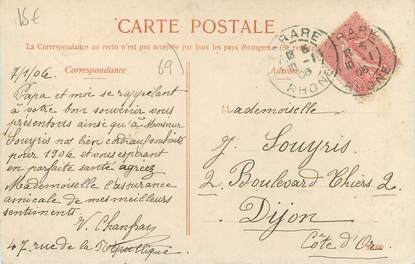 15€
CARTE POSTALE
La Correspondance au recto n'est pas acceptée par tous les pays étrangers
Correspondance
69
TARARE
RHONE
TARARE
RHONE
7/1/06.
Papa et moi se rappelant
à votre bon souvenir vous
présentons ainsi qu'à Monsieur
Souyris nos bien cordiaux souhaits
pour 1906 et vous espérant
en parfaite santé agréez
Mademoiselle l'assurance
amicale de mes meilleurs
sentiments
V. Chanfray
47 rue de la République
Mademoiselle
J. Souyris
2 Boulevard Thiers 2.
Dijon
Côte d'Or